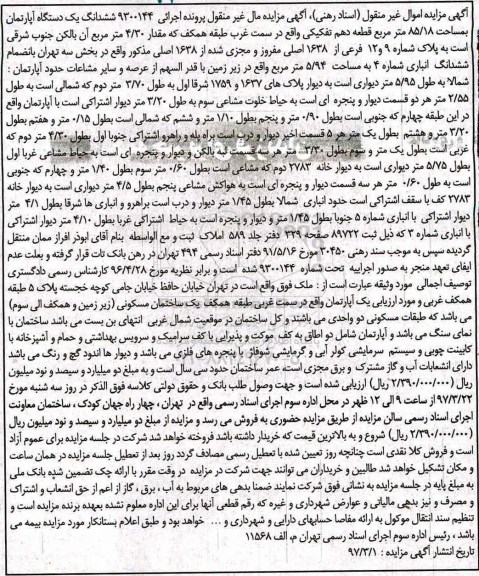 آگهی مزایده اموال غیر منقول (اسناد رهنی)، آگهی مزایده مال غیر منقول پرونده اجرائی ۹۳۰۰۱۴۴ ششدانگ یک دستگاه آپارتمان
بمساحت ۸۵/۱۸ متر مربع قطعه دهم تفکیکی واقع در سمت غرب طبقه همکف که مقدار ۴/۳۰ متر مربع آن بالکن جنوب شرقی
است به پلاک شماره ۹ و۱۲ فرعی از ۱۶۳۸ اصلی مفروز و مجزی شده از ۱۶۳۸ اصلی مذکور واقع در بخش سه تهران بانضمام
ششدانگ انباری شماره ۴ به مساحت ۵/۹۴ متر مربع واقع در زیر زمین با قدر السهم از عرصه و سایر مشاعات حدود آپارتمان :
شمالا به طول ۵/۹۵ متر دیواری است به دیوار پلاک های ۱۶۳۷ و ۱۷۵۹ شرقا اول به طول ۳/۷۰ متر دوم که شمالی است به طول
۲/۵۵ متر هر دو قسمت دیوار و پنجره ای است به حیاط خلوت مشاعی سوم به طول ۳/۲۰ متر دیوار اشتراکی است با آپارتمان واقع
در این طبقه چهارم که جنوبی است بطول ۰/۹۰ متر و پنجم بطول ۱/۱۰ متر و ششم که شمالی است بطول ۰/۱۵ متر و هفتم بطول
۳/۲۰ متر و هشتم بطول یک متر هر ۵ قسمت اخیر دیوار و درب است براه پله و راهرو اشتراکی جنوبا اول بطول ۴/۳۰ متر دوم که
غربی است بطول یک متر و سوم بطول ۳/۳۰ متر هر سه قسمت به بالکن و دیوار و پنجره ای است به حیاط مشاعی غربا اول
بطول ۵/۷۵ متر دیواری است به دیوار خانه ۲۷۸۳ دوم که مشاعی است بطول ۰/۶۰ متر سوم بطول ۱/۴۰ متر و چهارم که جنوبی
است به طول ۰/۶۰ متر هر سه قسمت دیوار و پنجره ای است به هواکش مشاعی پنجم بطول ۴/۵ متر دیواری است به دیوار خانه
۲۷۸۳ کف با سقف اشتراکی است حدود انباری شمالا بطول ۱/۴۵ متر دیوار و درب است براهرو و انباری ها شرقا بطول ۴/۱ متر
دیوار اشتراکی با انباری شماره ۵ جنوبا بطول ۱/۴۵ متر دیوار و پنجره است به حیاط اشتراکی غربا بطول ۴/۱۰ متر دیوار اشتراکی
با انباری شماره ۳ که ذیل ثبت ۸۹۷۲۲ صفحه ۳۲۹ دفتر جلد ۵۸۹ املاک ثبت و مع الواسطه بنام آقای ابوذر افراز ممان منتقل
گردیده سپس به موجب سند رهنی ۳۰۴۵۰ مورخ ۹۱/۵/۱۶ دفتر اسناد رسمی ۴۹۴ تهران در رهن بانک تات قرار گرفته و بعلت عدم
ایفای تعهد منجر به صدور اجراییه تحت شماره ۹۳۰۰۱۴۴ شده است و برابر نظریه مورخ ۹۶/۴/۲۸ کارشناس رسمی دادگستری
توصیف اجمالی مورد وثیقه عبارت است از : ملک فوق واقع است در تهران خیابان حافظ خیابان جامی کوچه خجسته پلاک ۵ طبقه
همکف غربی و مورد ارزیابی یک آپارتمان واقع در سمت غربی طبقه همکف یک ساختمان مسکونی (زیر زمین و همکف الی سوم)
می باشد که طبقات مسکونی دو واحدی می باشند و کل ساختمان در موقعیت شمال غربی انتهای بن بست می باشد ساختمان با
نمای سنگ می باشد و آپارتمان شامل دو اطاق به کف موکت و پذیرایی با کف سرامیک و سرویس بهداشتی و حمام و آشپزخانه با
کابینت چوبی و سیستم سرمایشی کولر آبی و گرمایشی شوفاژ با پنجره های فلزی می باشد و دیوار ها اندود گچ و رنگ می باشد
دارای انشعابات آب و گاز مشترک و برق مجزی است، عمر ساختمان حدود سی سال است و به مبلغ دو میلیارد و سیصد و نود میلیون
ریال (۲/۳۹۰/۰۰۰/۰۰۰ ریال) ارزیابی شده است و جهت وصول طلب بانک و حقوق دولتی کلاسه فوق الذکر در روز سه شنبه مورخ
۹۷/۳/۲۲ از ساعت ۹ الی ۱۲ ظهر در محل اداره سوم اجرای اسناد رسمی واقع در تهران ، چهار راه جهان کودک ، ساختمان معاونت
اجرای اسناد رسمی سالن مزایده از طریق مزایده حضوری به فروش می رسد و مزایده از مبلغ دو میلیارد و سیصد و نود میلیون ریال
(۲/۳۹۰/۰۰۰/۰۰۰ ریال) شروع و به بالاترین قیمت که خریدار داشته باشد فروخته خواهد شد شرکت در جلسه مزایده برای عموم آزاد
است و فروش کلا نقدی است چنانچه روز تعیین شده با تعطیل رسمی مصادف گردد روز بعد از تعطیل جلسه مزایده در همان ساعت
و مکان تشکیل خواهد شد طالبین و خریداران می توانند جهت شرکت در مزایده در وقت مقرر با ارائه چک تضمین شده بانک ملی
به مبلغ پایه در جلسه مزایده به نشانی فوق شرکت نمایند ضمنا بدهی های مربوط به آب ، برق ، گاز از اعم از حق انشعاب و اشتراک
و مصرف و نیز بدهی مالیاتی و عوارض شهرداری و غیره که رقم قطعی آنها برای این اداره معلوم نشده بعهده برنده مزایده است و
تنظیم سند انتقال موکول به ارائه مفاصا حسابهای دارایی و شهرداری و ... خواهد بود و طبق اعلام بستانکار مورد مزایده بیمه می
باشد ، رئیس اداره سوم اجرای اسناد رسمی تهران م. الف ۱۱۵۶۸
تاریخ انتشار آگهی مزایده : ۹۷/۳/۱